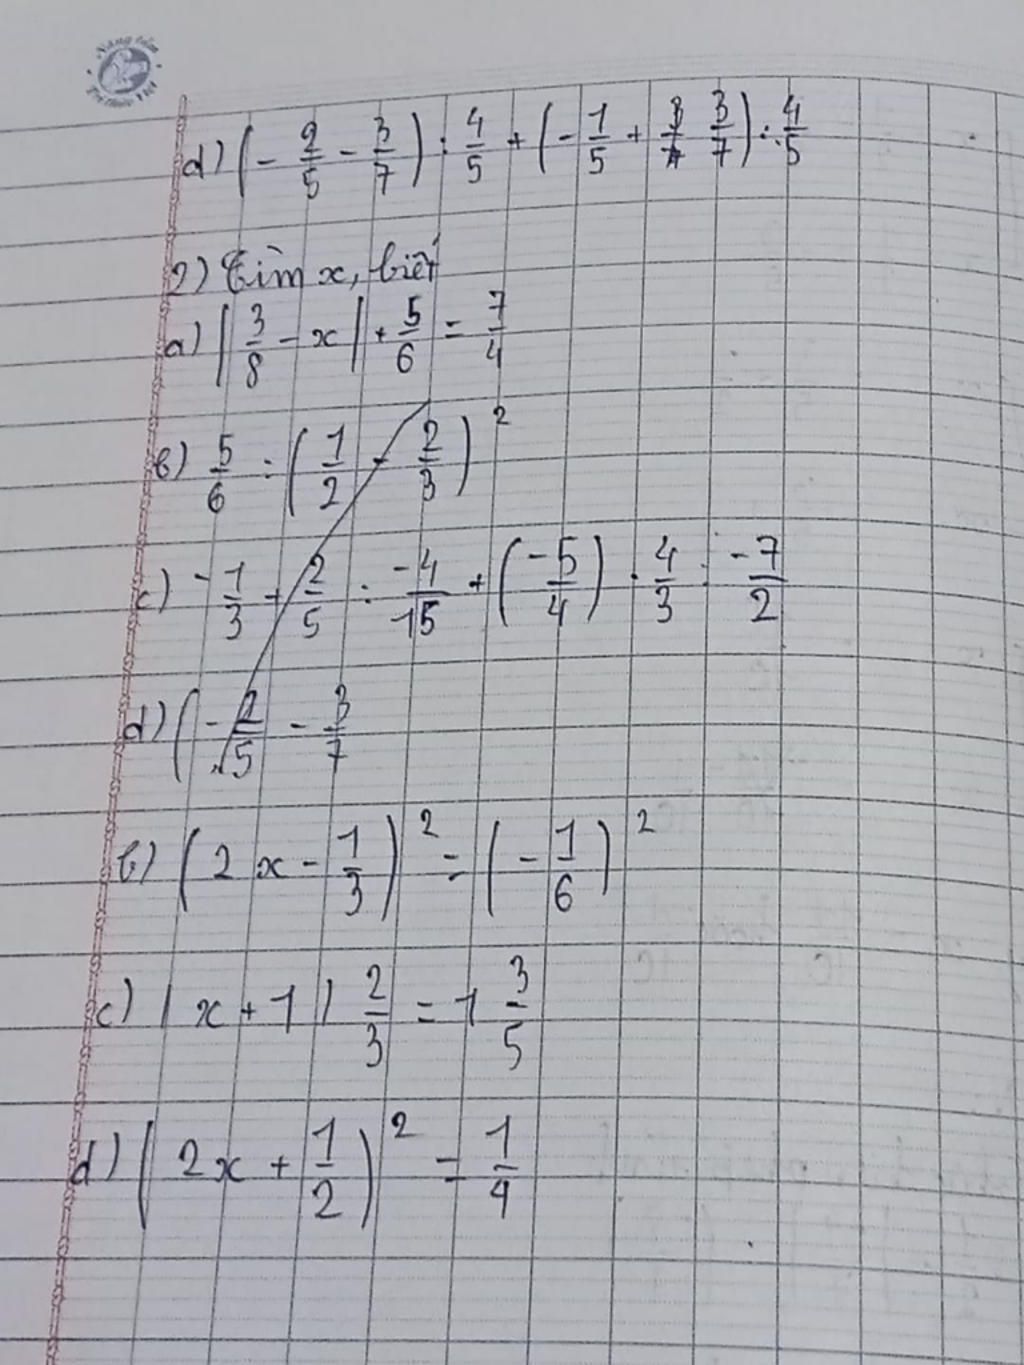 Nâng tầm
Tri thức Việt
d) (- 2/5 - 3/7) : 4/5 + (- 1/5 + 3/7) : 4/5
2) Tìm x, biết
a) | 3/8 - x | + 5/6 = 7/4
b) 5/6 : (1/2 - 2/3)²
c) -1/3 + 2/5 : -4/15 + (-5/4) . 4/3 : -7/2
d) (- 2/5 - 3/7
b) (2x - 1/3)² = (- 1/6)²
c) | x + 1 | 2/3 = 1 3/5
d) (2x + 1/2)² = 1/4